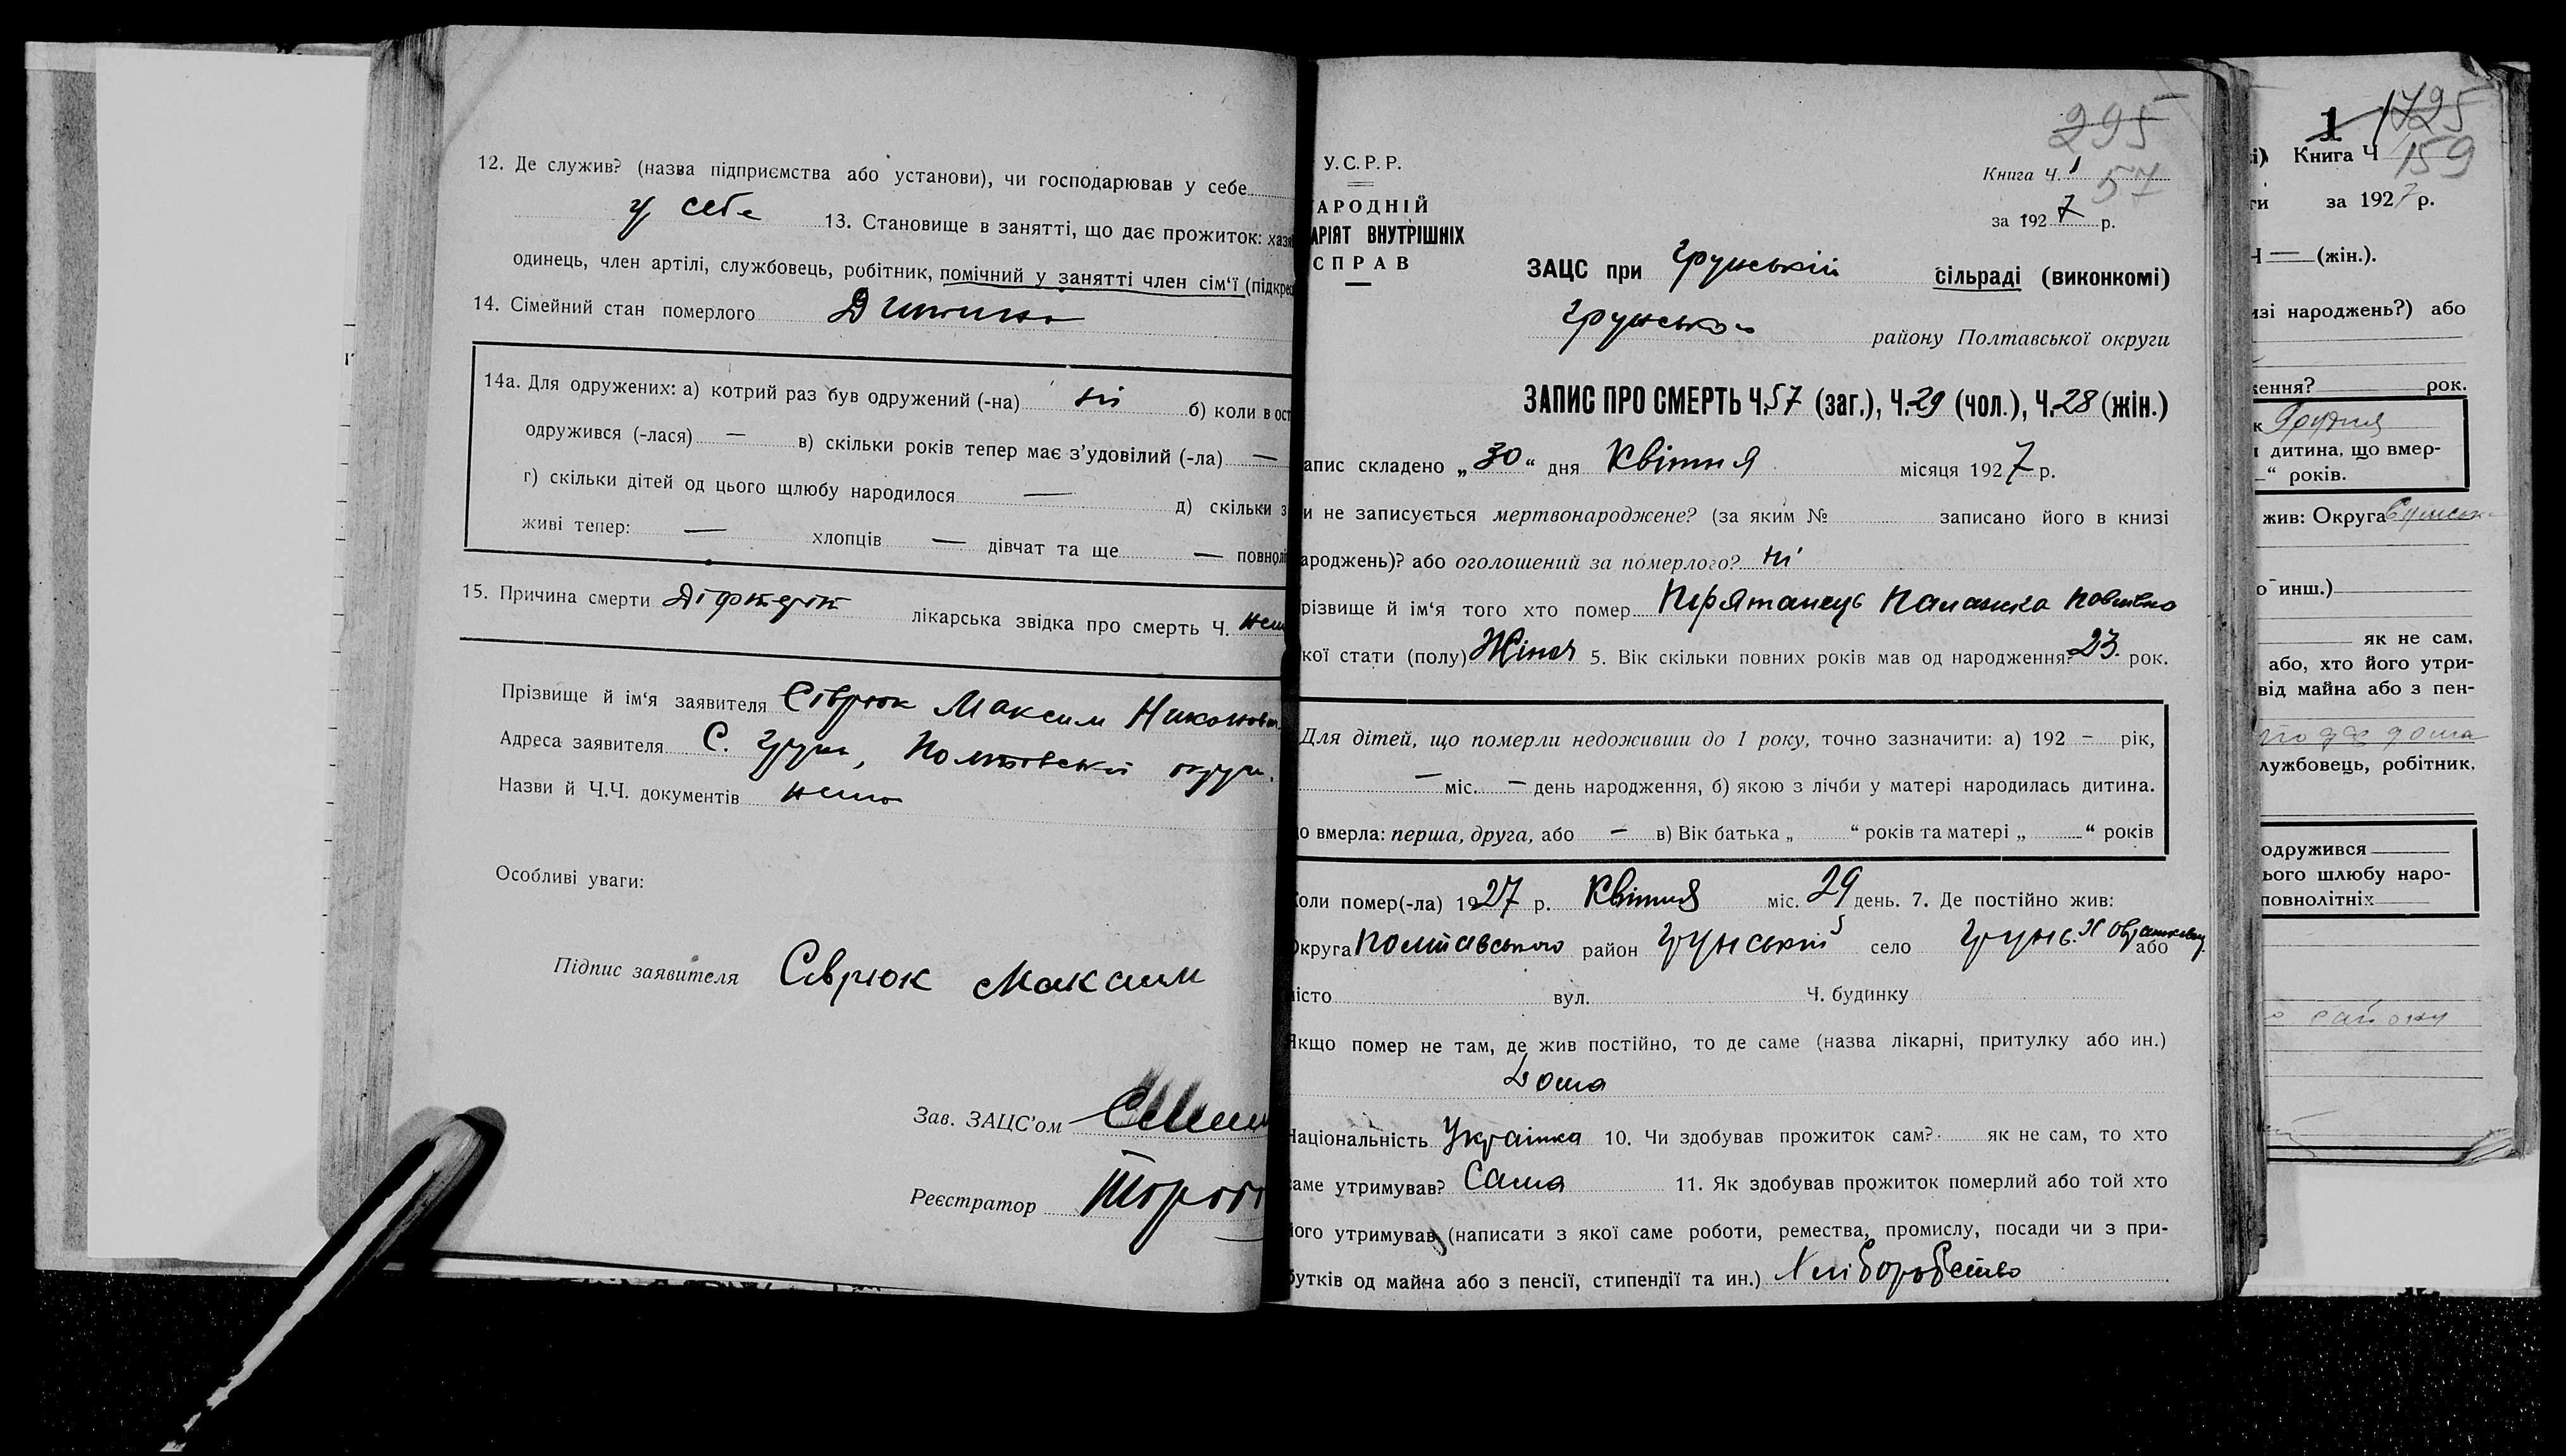 12. Де служив? (назва підприємства або установи), чи господарював у себе
у себе 13. Становище в занятті, що дає прожиток: хазя
одинець, член артілі, службовець, робітник, помічний у занятті член сім'ї (підкрес
14. Сімейний стан померлого Дитина
14а. Для одружених: а) котрий раз був одружений (-на) ні б) коли в ост
одружився (-лася) — в) скільки років тепер має з'удовілий (-ла) —
г) скільки дітей од цього щлюбу народилося — д) скільки з
живі тепер: — хлопців — дівчат та ще — повнолі
15. Причина смерти Діфтеріт лікарська звідка про смерть Ч. нем
Прізвище й ім'я заявителя Сіврюк Максим Никонович
Адреса заявителя С. Грунь, Полтавської округи.
Назви й Ч.Ч. документів нема
Особливі уваги:
Підпис заявителя Сіврюк Максим
Зав. ЗАЦС'ом
Реєстратор
295
57
У.С.Р.Р.
Книга Ч. 1
АРОДНІЙ
АРІЯТ ВНУТРІШНІХ
СПРАВ
за 1927 р.
ЗАЦС при Грунській сільраді (виконкомі)
Грунського району Полтавської округи
ЗАПИС ПРО СМЕРТЬ Ч. 57 (заг.), Ч. 29 (чол.), Ч. 28 (жін.)
апис складено „30“ дня Квітня місяця 1927 р.
и не записується мертвонароджене? (за яким № записано його в книзі
ароджень)? або оголошений за померлого? ні
різвище й ім'я того хто помер Палажка Павлівна
кої стати (полу) Жіноч 5. Вік скільки повних років мав од народження? 23. рок.
Для дітей, що померли недоживши до 1 року, точно зазначити: а) 192 – рік,
— міс. — день народження, б) якою з лічби у матері народилась дитина.
о вмерла: перша, друга, або — в) Вік батька „ “ років та матері „ “ років
оли помер(-ла) 1927 р. Квітня міс. 29 день. 7. Де постійно жив:
Округа Полтавського район Грунський село Грунь. або
місто вул. Ч. будинку
Якщо помер не там, де жив постійно, то де саме (назва лікарні, притулку або ин.)
Дома
Національність Українка 10. Чи здобував прожиток сам? як не сам, то хто
саме утримував? Сама 11. Як здобував прожиток померлий або той хто
його утримував (написати з якої саме роботи, ремества, промислу, посади чи з при-
бутків од майна або з пенсії, стипендії та ин.) Хліборобство
1 1725
159
і) Книга Ч
ти за 1927 р.
Ч — (жін.).
изі народжень?) або
ження? рок.
к Грудня
дитина, що вмер-
“ років.
жив: Округа Сумськ
о инш.)
як не сам,
або, хто його утри-
від майна або з пен-
лужбовець, робітник,
одружився
ього шлюбу наро-
повнолітніх
району